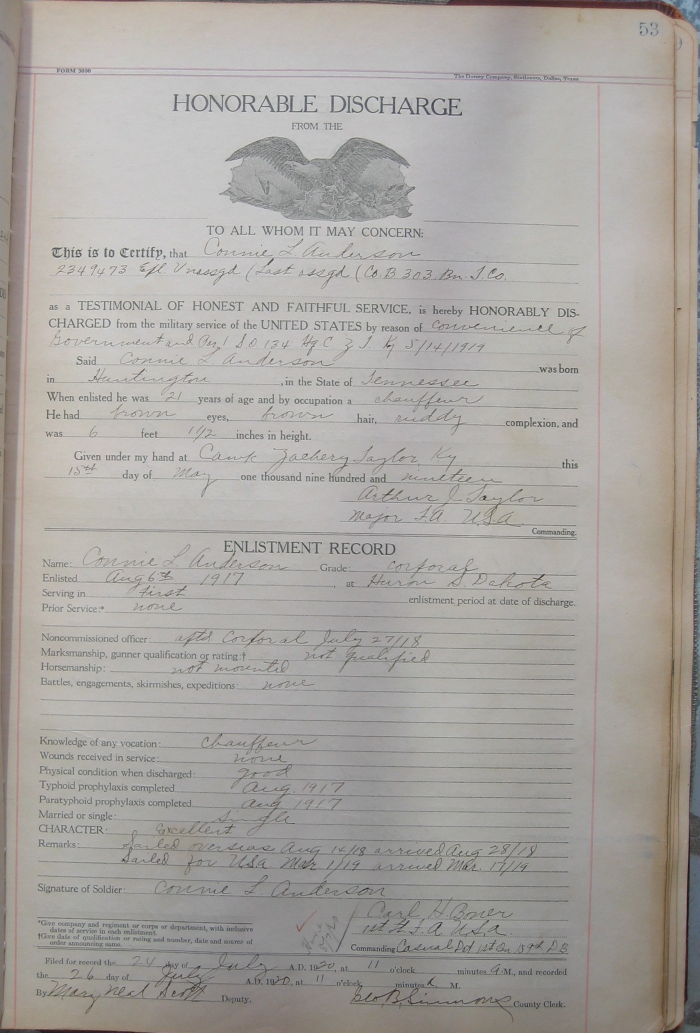 53
FORM 3000
The Dorsey Company, Stationers, Dallas, Texas
HONORABLE DISCHARGE
FROM THE
TO ALL WHOM IT MAY CONCERN:
This is to Certify, that Connie L Anderson
2349473 Unassgd (Last assgd (Co. B. 303 Bn. T. Co.
as a TESTIMONIAL OF HONEST AND FAITHFUL SERVICE, is hereby HONORABLY DIS-
CHARGED from the military service of the UNITED STATES by reason of convenience of
Government and Par 1 S.O. 134 Hq C Z T Ky 5/14/1919
Said Connie L Anderson was born
in Huntington, in the State of Tennessee
When enlisted he was 21 years of age and by occupation a chauffeur
He had brown eyes, brown hair, ruddy complexion, and
was 6 feet 1 1/2 inches in height.
Given under my hand at Camp Zachery Taylor Ky this
15th day of May one thousand nine hundred and nineteen
Arthur J Taylor
Major F.A. U.S.A
Commanding.
ENLISTMENT RECORD
Name: Connie L Anderson Grade: corporal
Enlisted Aug 6th 1917, at Huron S. Dakota
Serving in First enlistment period at date of discharge.
Prior Service:* none
Noncommissioned officer: aptd Corporal July 27/18
Marksmanship, gunner qualification or rating:† not qualified
Horsemanship: not mounted
Battles, engagements, skirmishes, expeditions: none
Knowledge of any vocation: chauffeur
Wounds received in service: none
Physical condition when discharged: good
Typhoid prophylaxis completed Aug. 1917
Paratyphoid prophylaxis completed Aug 1917
Married or single: Single
CHARACTER: Excellent
Remarks: Sailed overseas Aug 14/18 arrived Aug 28/18
Sailed for USA Mar 1/19 arrived Mar. 17/19
Signature of Soldier: Connie L Anderson
Carl H
1st Lt F.A U.S.A.
*Give company and regiment or corps or department, with inclusive
dates of service in each enlistment.
†Give date of qualification or rating and number, date and source of
order announcing same.
Commanding Casual Det 1st Bn 159th D B
Filed for record the 24 day of July A.D. 1920, at 11 o'clock minutes A M., and recorded
the 26 day of July A.D. 1920, at 11 o'clock minutes M.
By Mary Neal Scott Deputy. Geo B. Simmons County Clerk.